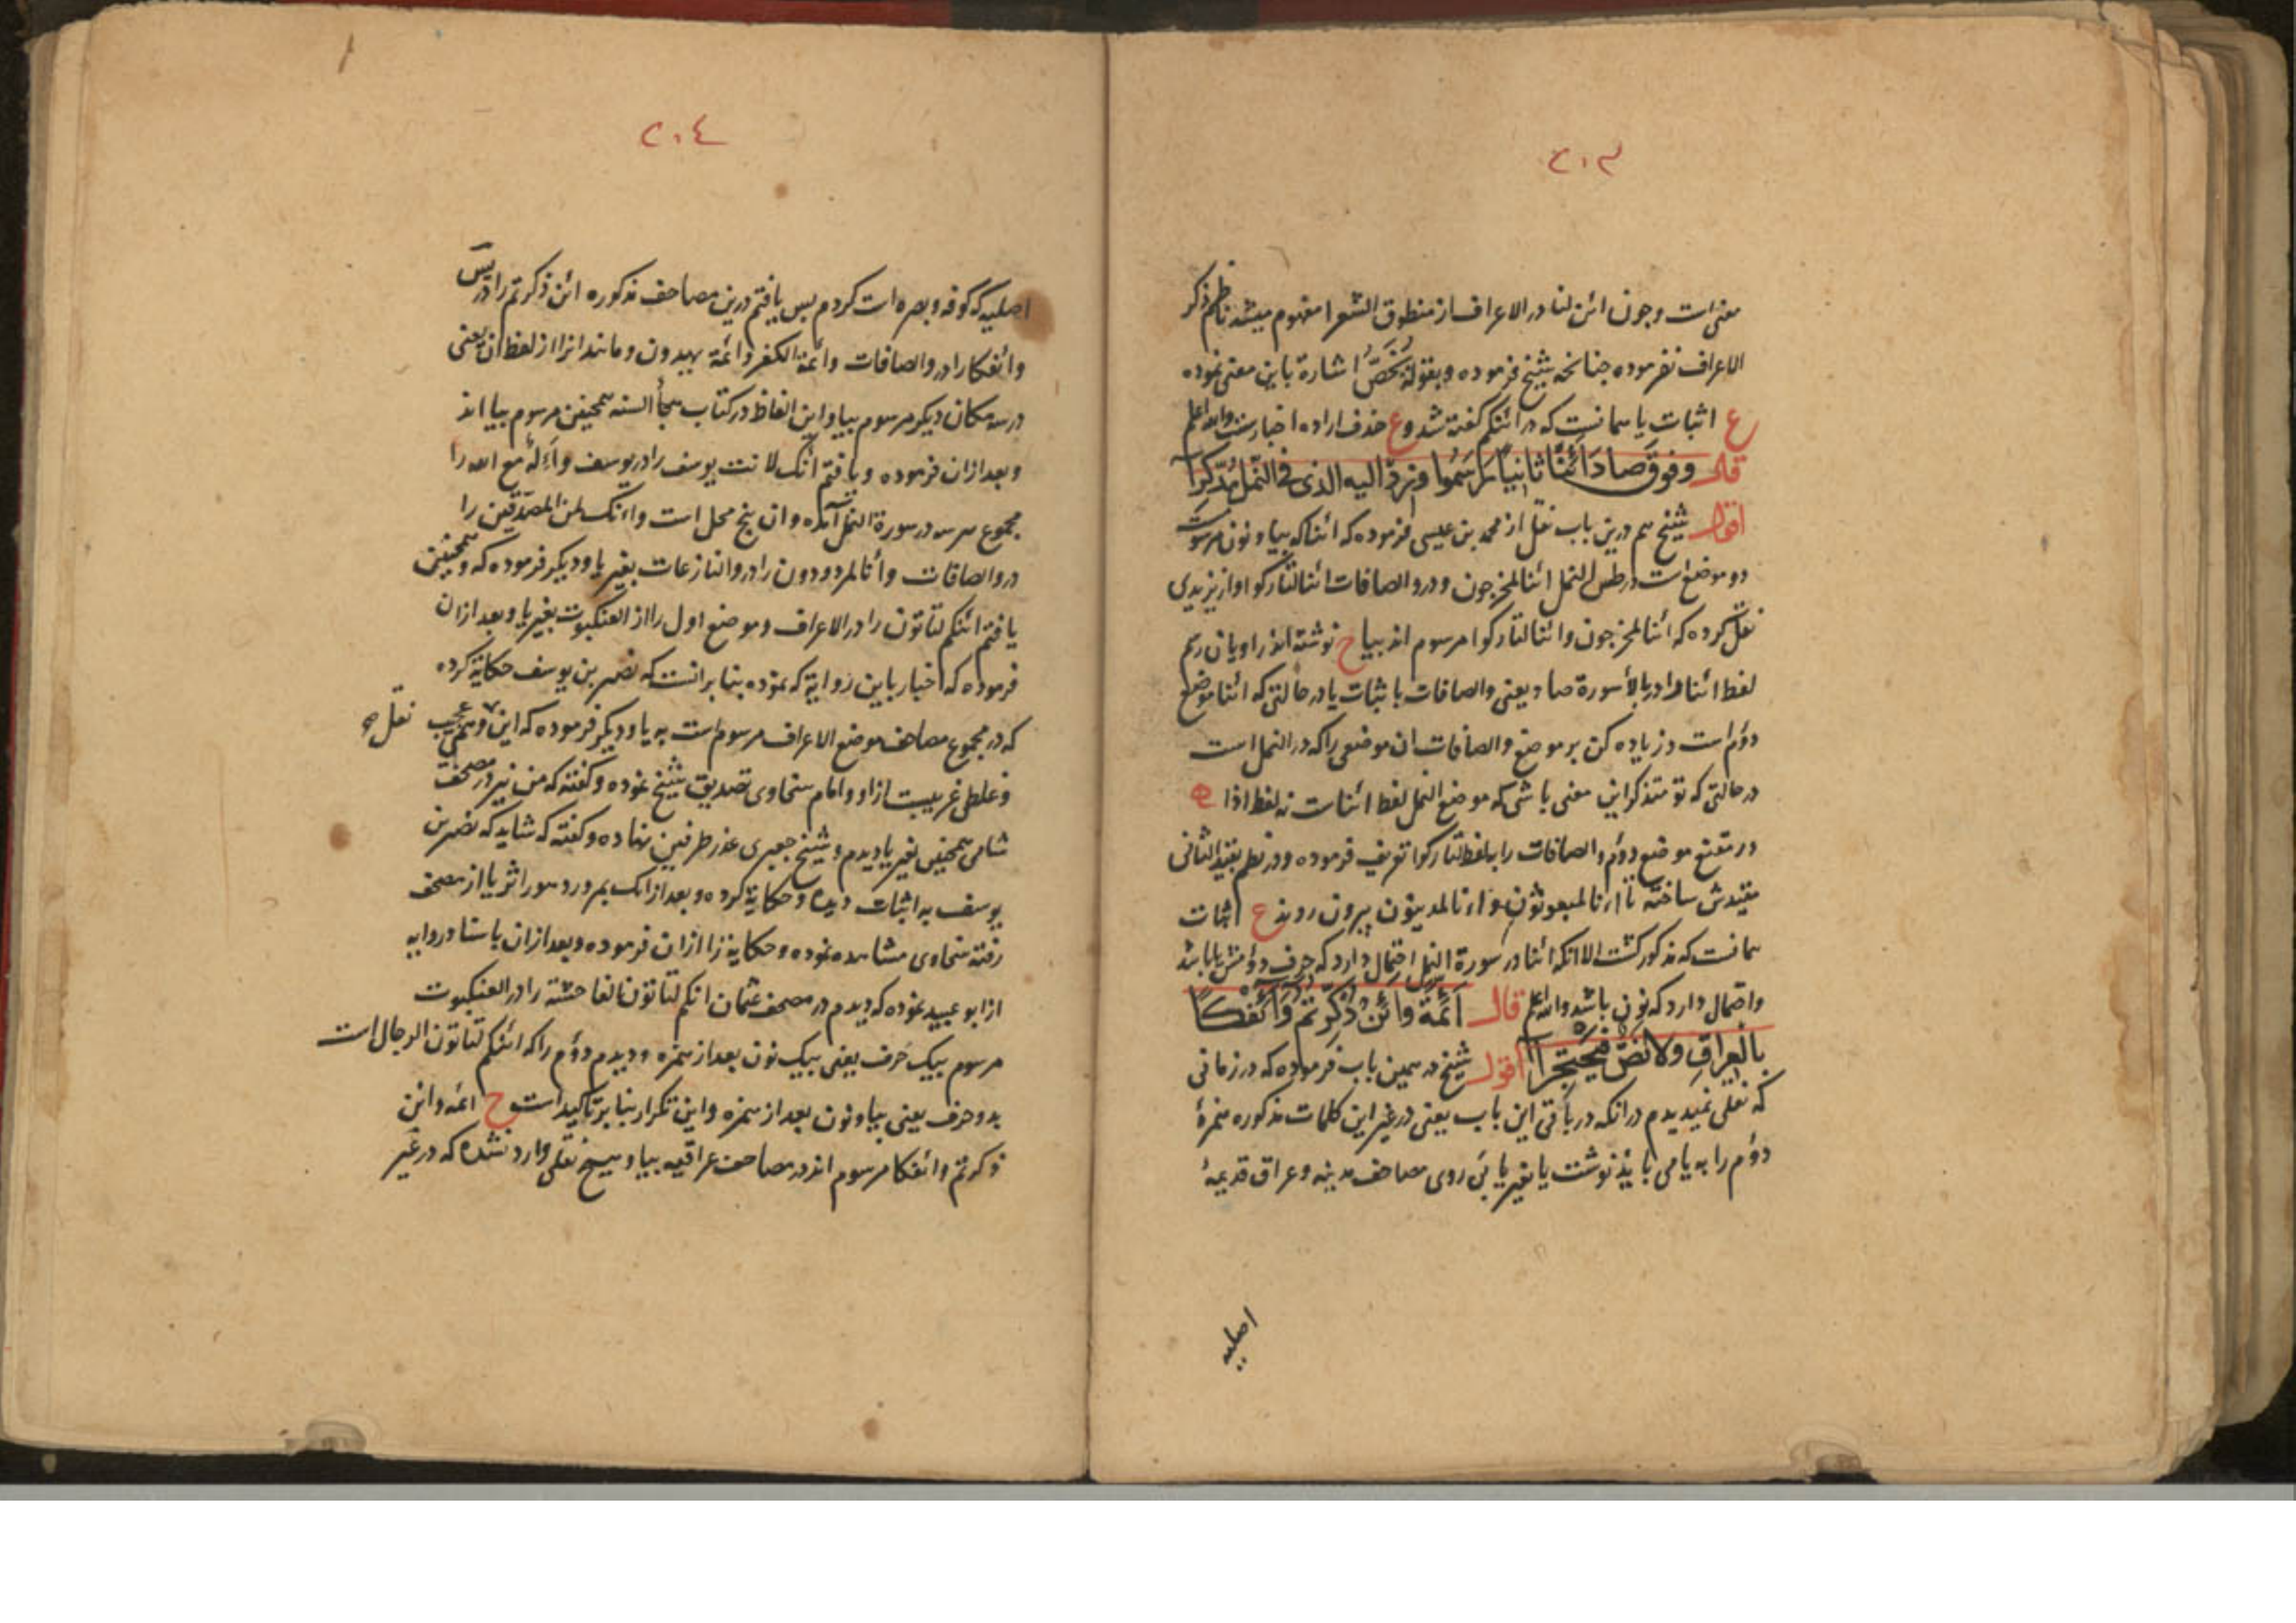 ٢٠٣
معنی است و چون ائن لنا در الاعراف از منطوق الشعرا مفهوم میشد ناظم ذکر
الاعراف نفرموده چنانچه شیخ فرموده و بقوله نخص اشارة باین معنی نموده
ع اثبات یا همانست که در ائنکم کفته شد وع حذف اراده اخبارست والله اعلم
قال وفوق صاد ائنا ثانیا رسموا وزد الیه الذی فی النمل مدکرا
اقول شیخ هم درین باب نقل از محمد بن عیسی فرموده که ائنا که بیا و نون مرسومست
دو موضع است در طس النمل ائنا لمخرجون و در والصافات ائنا لتارکوا و از یزیدی
نقل کرده که ائنا لمخرجون و ائنا لتارکوا مرسوم اند بیا ح نوشته اند راویان رسم
لفظ ائنا را در بالای سورة صاد یعنی والصافات باثبات یا در حالتی که ائنا موضع
دوم است و زیاده کن بر موضع والصافات ان موضعی را که در النمل است
در حالتی که تو متذکر این معنی باشی که موضع النمل لفظ ائناست نه لفظ اذا
در مقنع موضع دوم والصافات را بلفظ لتارکوا تعریف فرموده و در نظم بقید الثانی
مقیدش ساخته تا اءنا لمبعوثون و اءنا لمدینون بیرون روند ع اثبات
همانست که مذکور کشت الا انکه ائنا در سورة النمل احتمال دارد که حرف دومش یا باشد
و احتمال دارد که نون باشد والله اعلم قال ائمة وائن ذکرتم وائفکا
بالعراق ولا نص فیحتجرا اقول شیخ در همین باب فرموده که در زمانی
که نقلی نمیدیدم در انکه در باقی این باب یعنی در غیر این کلمات مذکوره همزهٔ
دوم را به یا می باید نوشت یا بغیر یا پی روی مصاحف مدینه و عراق قدیمهٔ
اصلیه
٢٠٤
اصلیه که کوفه و بصره است کردم پس یافتم درین مصاحف مذکوره ائن ذکرتم را در یس
و ائفکا را در والصافات و ائمة الکفر و ائمة یهدون و مانند انرا از لفظ ان یعنی
در سه مکان دیکر مرسوم بیا و این الفاظ در کتاب هجأ السنه همچنین مرسوم بیا اند
و بعد ازان فرموده و یافتم أنک لانت یوسف را در یوسف و أءله مع الله را
مجموع هر سه در سورة النمل آمده و ان پنج محل است و اءنک لمن المصدقین را
در والصافات و أنا لمردودون را در والنازعات بغیر یا و دیکر فرموده که و همچنین
یافتم ائنکم لتاتون را در الاعراف و موضع اول را از العنکبوت بغیر یا و بعد ازان
فرموده که اخبار باین روایة که نموده بنا برانست که نصیر بن یوسف حکایة کرده
که در مجموع مصاحف موضع الاعراف مرسوم است به یا و دیکر فرموده که این وهمی عجیب نقل
و غلطی غریبست ازاو و امام سخاوی تصدیق شیخ نموده و کفته که من نیز در مصحف
شامی همچنین بغیر یا دیدم و شیخ جعبری عذر طرفین نهاده و کفته که شاید که نصیر بن
یوسف به اثبات دیده و حکایة کرده و بعد ازانک بمرور دهور اثر یا از مصحف
رفته سخاوی مشاهده نموده و حکایة را ازان فرموده و بعد ازان باسناد روایه
از ابو عبید نموده که دیدم در مصحف عثمان انکم لتاتون الفاحشة را در العنکبوت
مرسوم بیک حرف یعنی بیک نون بعد از همزه و دیدم دوم را که ائنکم لتاتون الرجال است
بدو حرف یعنی بیا و نون بعد از همزه و این تکرار بنا بر تاکید است ح ائمة و ائن
ذکرتم و ائفکا مرسوم اند در مصاحف عراقیه بیا و هیچ نقلی وارد نشده که در غیر